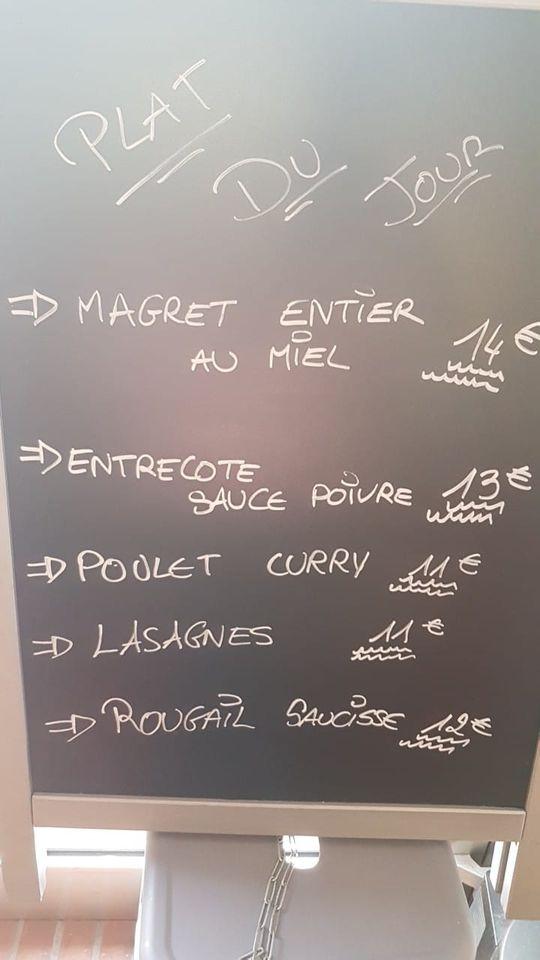 PLAT DU JOUR
⇒ MAGRET ENTIER
AU MIEL 14€
⇒ ENTRECOTE
SAUCE POIVRE 13€
⇒ POULET CURRY 11€
⇒ LASAGNES 11€
⇒ ROUGAIL SAUCISSE 12€